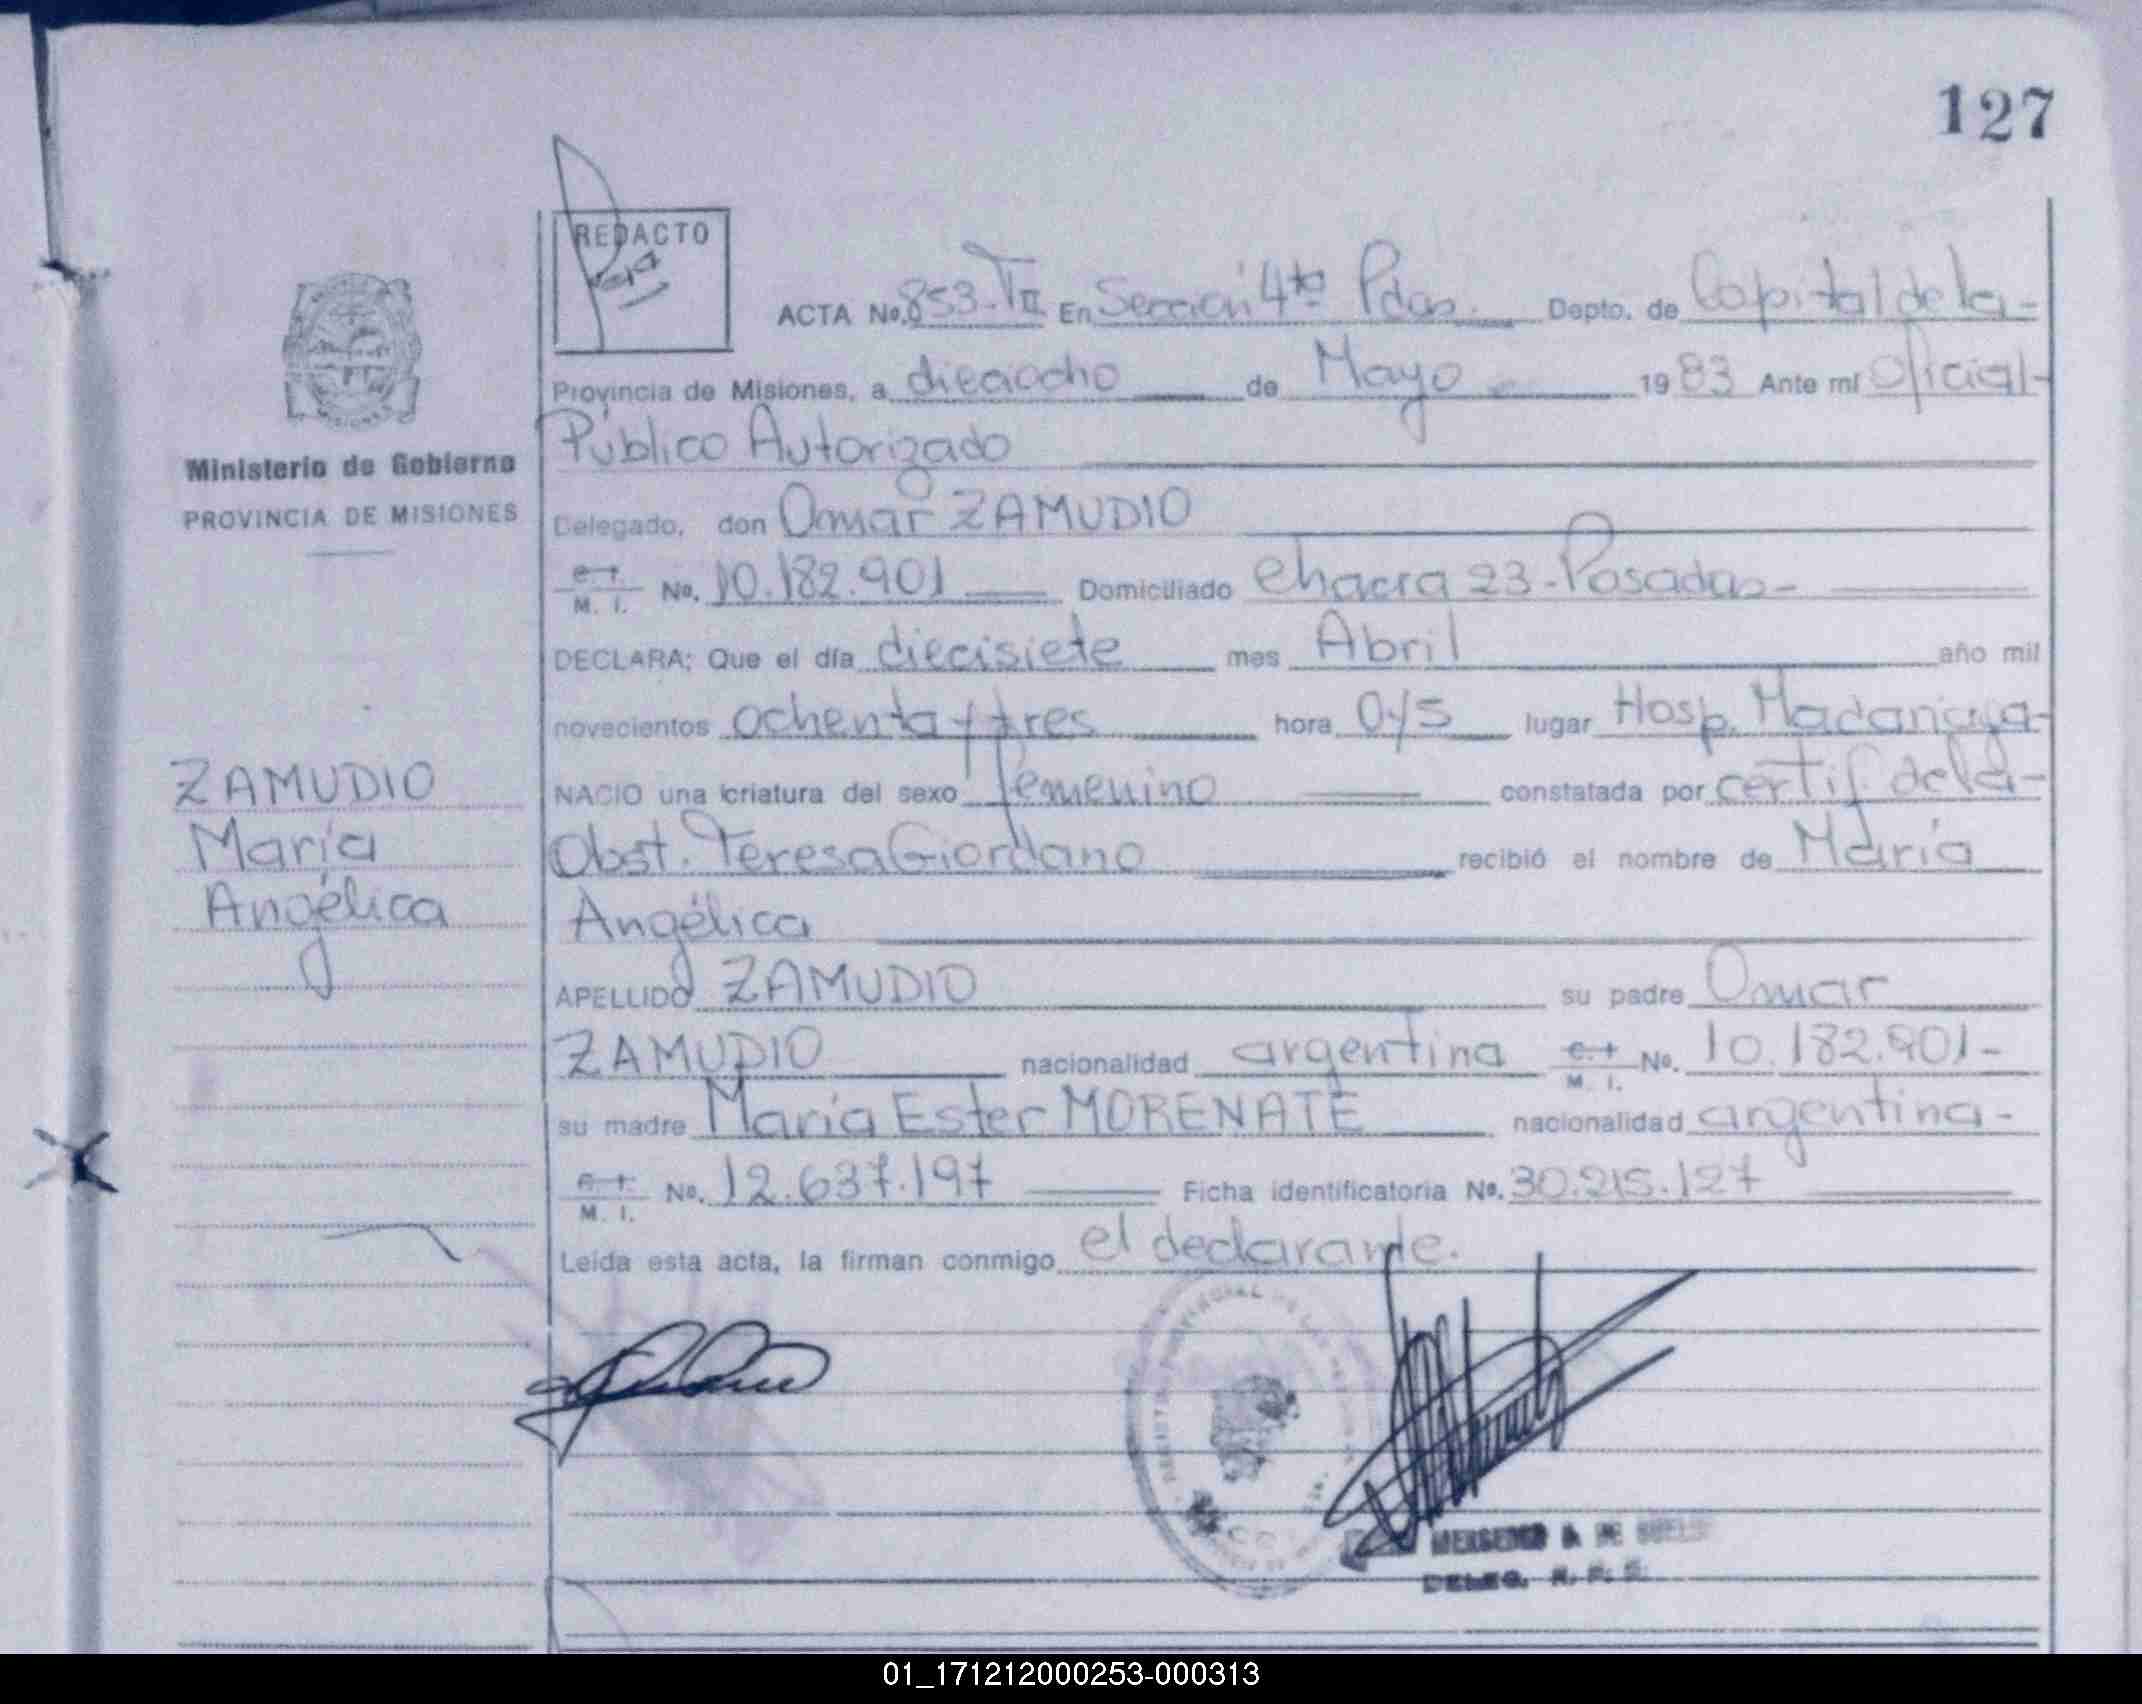 127
REDACTO
ACTA No. 853-TII En Sección 4ta Pdas. Depto. de Capital de la-
Provincia de Misiones, a dieciocho de Mayo 1983 Ante mí Oficial-
Público Autorizado
Delegado, don Omar ZAMUDIO
M. I. No. 10.182.901 Domiciliado Chacra 23-Posadas-
DECLARA: Que el día diecisiete mes Abril año mil
novecientos ochenta y tres hora 0/5 lugar Hosp. Madariaga-
NACIO una criatura del sexo femenino constatada por certif. de la-
Obst. Teresa Giordano recibió el nombre de María
Angélica
APELLIDO ZAMUDIO su padre Omar
ZAMUDIO nacionalidad argentina M. I. No. 10.182.901-
su madre María Ester MORENATE nacionalidad argentina-
M. I. No. 12.637.197 Ficha identificatoria No. 30.215.127
Leída esta acta, la firman conmigo el declarante.
Ministerio de Gobierno
PROVINCIA DE MISIONES
ZAMUDIO
María
Angélica
DELEG. R. P. P.
01_171212000253-000313